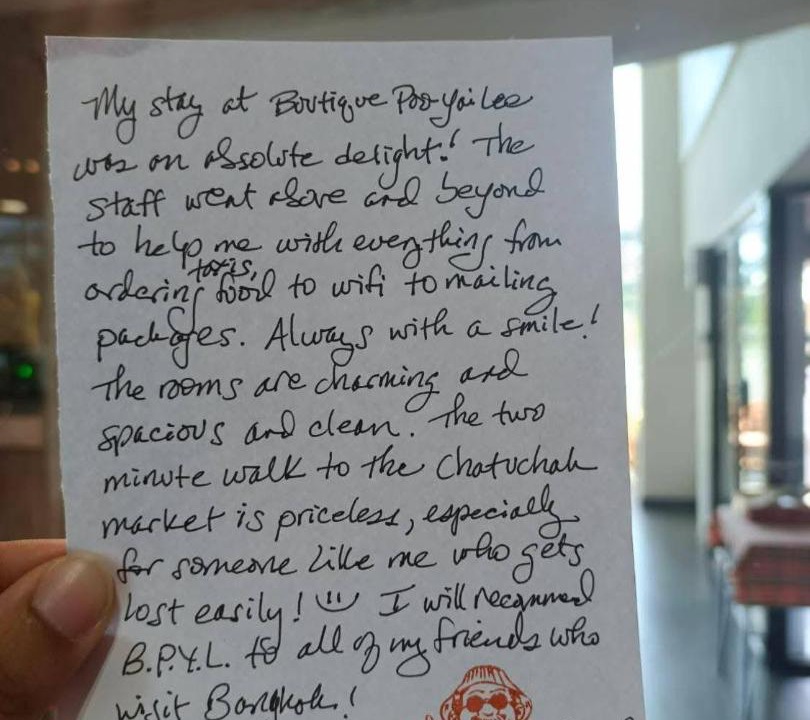 My stay at Boutique Poo Yai Lee
was an absolute delight! The
staff went above and beyond
to help me with everything from
taxis,
ordering food to wifi to mailing
packages. Always with a smile!
The rooms are charming and
spacious and clean. The two
minute walk to the Chatuchak
market is priceless, especially
for someone like me who gets
lost easily! I will recommend
B.P.Y.L. to all of my friends who
visit Bangkok!